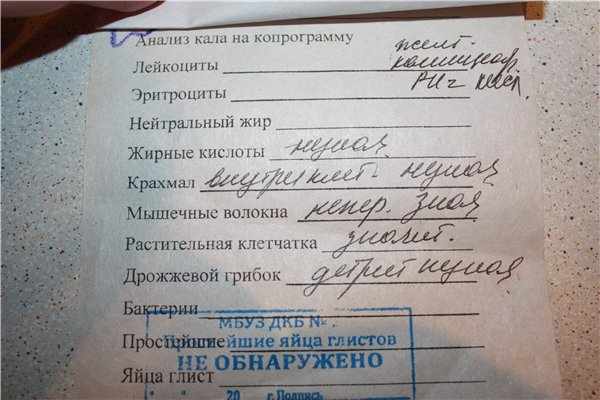 Анализ кала на копрограмму желт.
Лейкоциты кашицеоб.
Эритроциты РН= кисл
Нейтральный жир
Жирные кислоты
Крахмал внутриклет.
Мышечные волокна непер.
Растительная клетчатка значит.
Дрожжевой грибок детрит
Бактерии
МБУЗ ДКБ №
Простейшие Простейшие яйца глистов
НЕ ОБНАРУЖЕНО
Яйца глист
20 г. Подпись